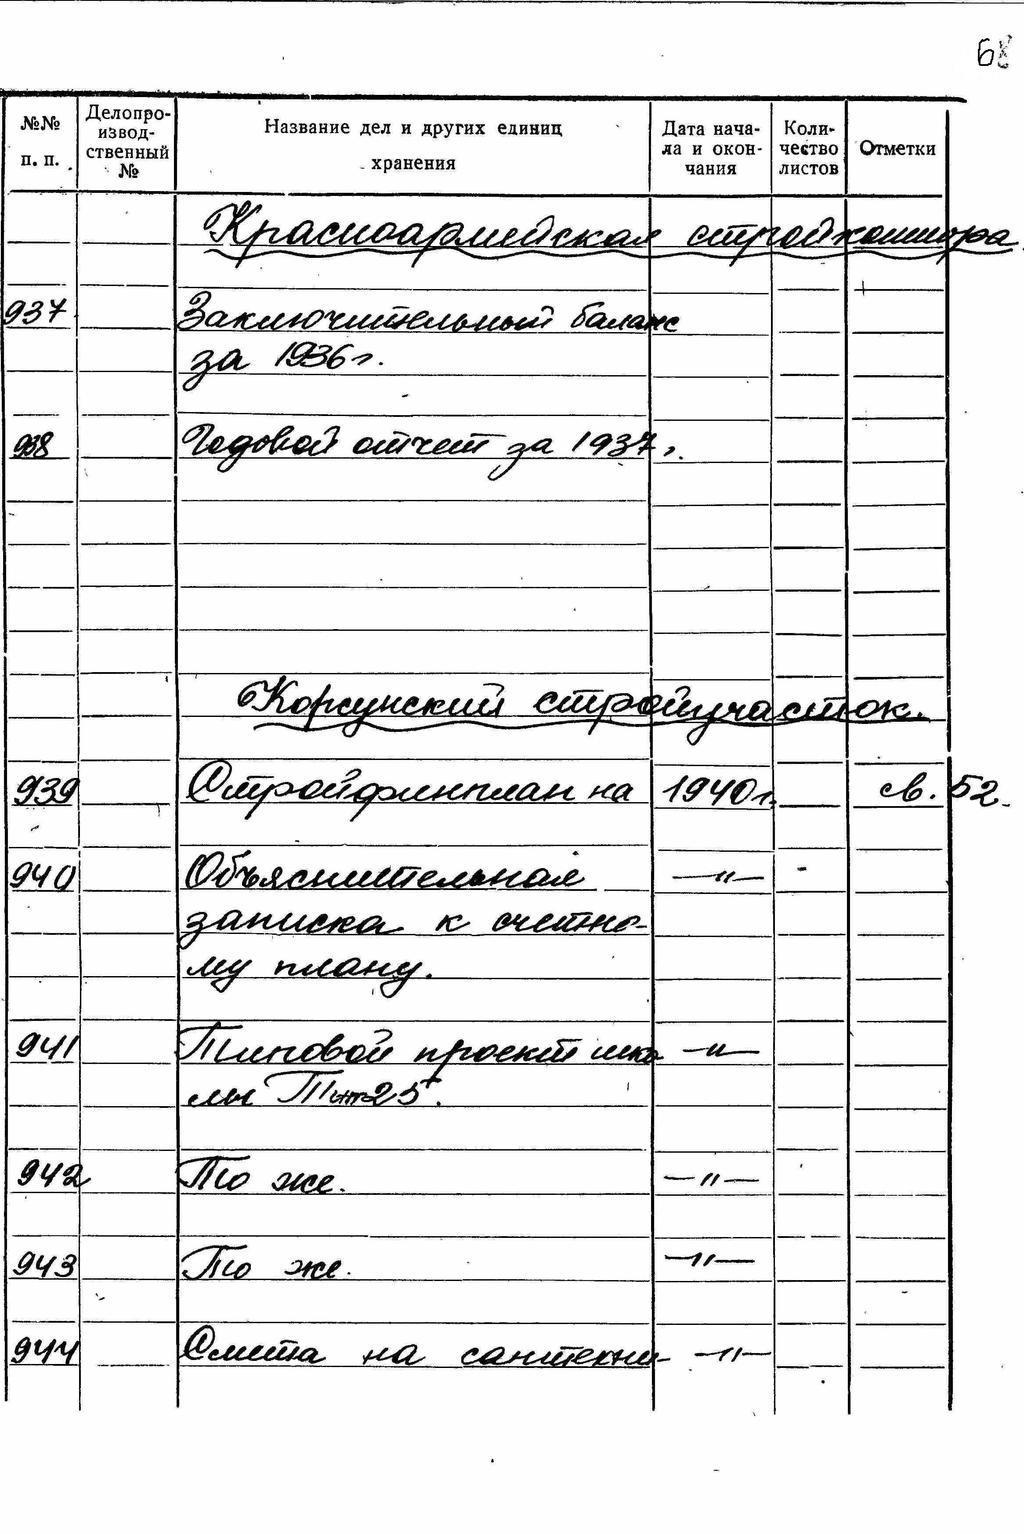 №№ п. п.
Делопро-
извод-
ственный
№
Название дел и других единиц
хранения
Дата нача-
ла и окон-
чания
Коли-
чество
листов
Отметки
Красноармейская стройконтора
937 Заключительный баланс
за 1936 г.
938 Годовой отчет за 1937 г.
Корсунский стройучасток.
939 Стройфинплан на 1940 г. св. 52.
940 Объяснительная —"—
записка к счетно-
му плану.
941 Типовой проект шко —"—
лы 25.
942 То же. —"—
943 То же. —"—
944 Смета на сантехни- —"—